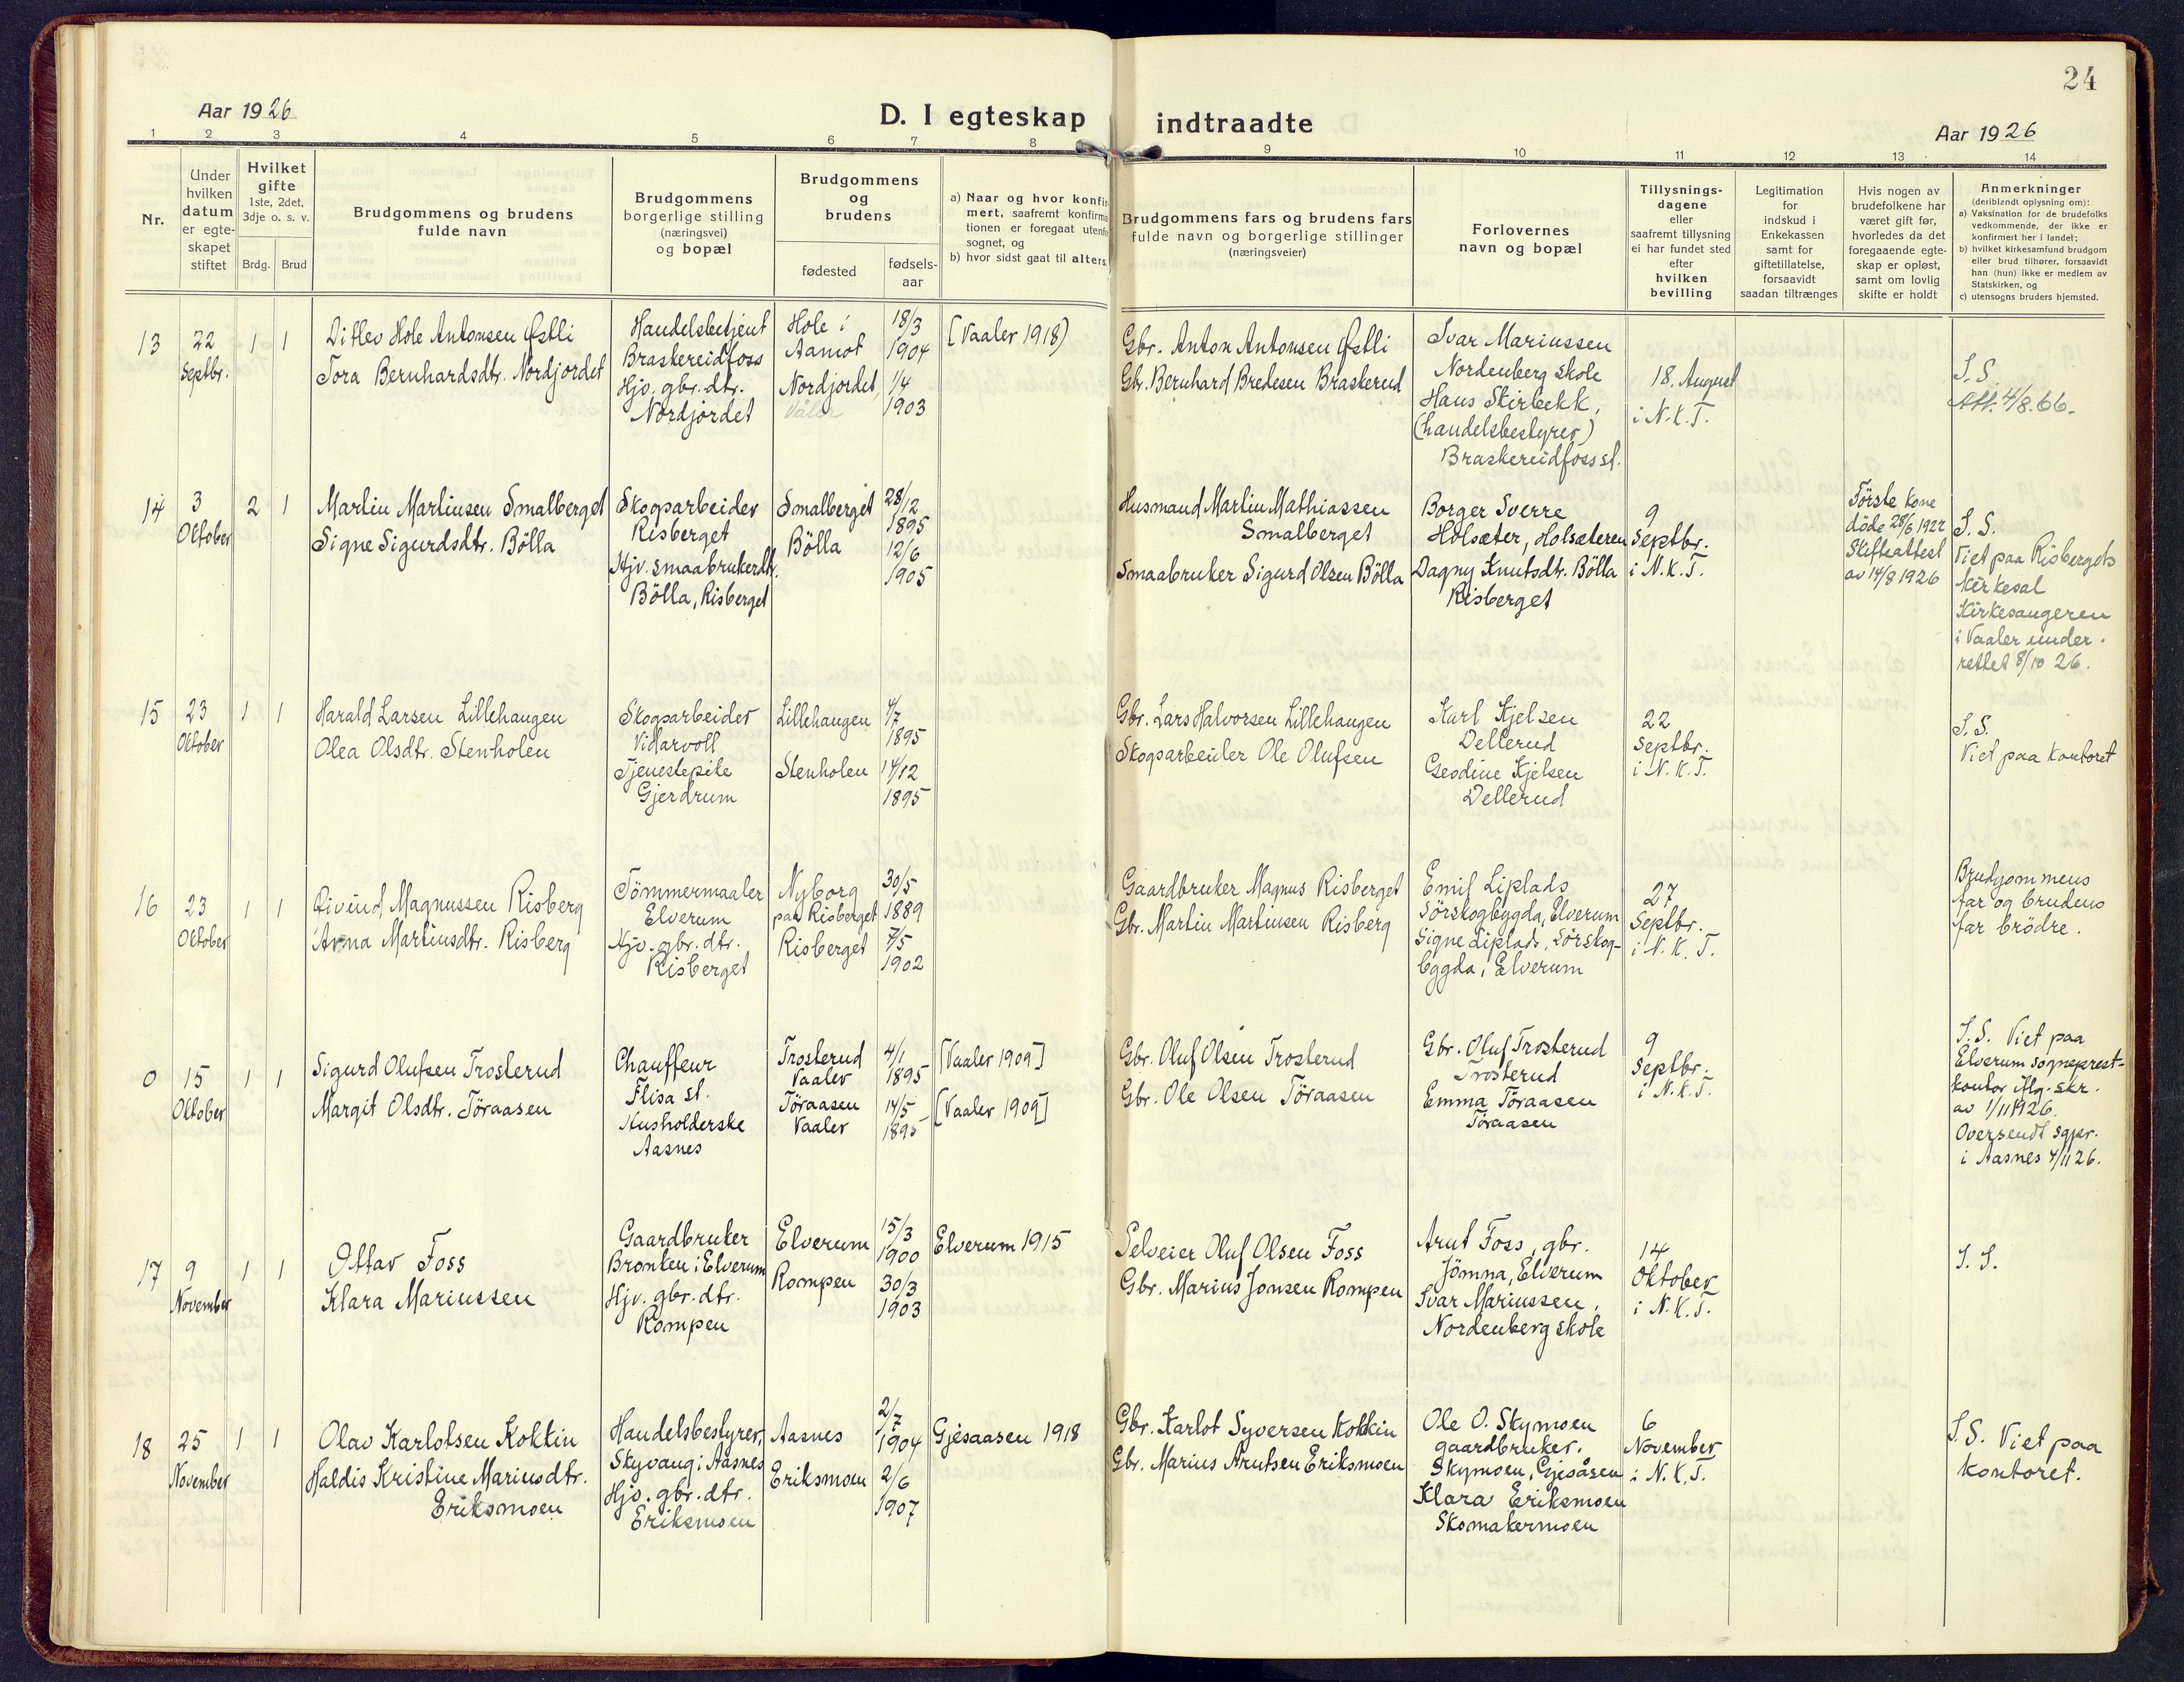 24
Aar 1926
D. I egteskap indtraadte
Aar 1926
1 2 3 4 5 6 7 8 9 10 11 12 13 14
Nr.
Under
hvilken
datum
er egte-
skapet
stiftet
Hvilket
gifte
1ste, 2det,
3dje o. s. v.
Brdg. Brud
Brudgommens og brudens
fulde navn
Brudgommens
borgerlige stilling
(næringsvei)
og bopæl
Brudgommens
og
brudens
fødested
fødsels-
aar
a) Naar og hvor konfir
mert, saafremt konfirma
tionen er foregaat utenfo
sognet, og
b) hvor sidst gaat til alters.
Brudgommens fars og brudens fars
fulde navn og borgerlige stillinger
(næringsveier)
Forlovernes
navn og bopæl
Tillysnings-
dagene
eller
saafremt tillysning
ei har fundet sted
efter
hvilken
bevilling
Legitimation
for
indskud i
Enkekassen
samt for
giftetillatelse,
forsaavidt
saadan tiltrænges
Hvis nogen av
brudefolkene har
været gift før,
hvorledes da det
foregaaende egte-
skap er opløst,
samt om lovlig
skifte er holdt
Anmerkninger
(deriblandt oplysning om):
a) Vaksination for de brudefolks
vedkommende, der ikke er
konfirmert her i landet;
b) hvilket kirkesamfund brudgom
eller brud tilhører, forsaavidt
han (hun) ikke er medlem av
Statskirken, og
c) utensogns bruders hjemsted.
13
22
Septbr.
1 1
Ditlev Hole Antonsen Østli
Tora Bernhardsdtr. Nordjordet
Handelsbetjent
Braskereidfoss
Hjv. gbr. dtr.
Nordjordet
Hole i
Aamot
Nordjordet,
Våler
18/3
1904
1/4
1903
[Vaaler 1918)
Gbr. Anton Antonsen Østli
Gbr. Bernhard Bredesen Braskerud
Ivar Mariussen
Nordenberg skole
Hans Skirbekk,
(handelsbestyrer)
Braskereidfoss st.
18. August
i N.K.T.
I.S.
Att. 4/8.66.
14
3
Oktober
2 1
Martin Martinsen Smalberget
Signe Sigurdsdtr. Bölla
Skogsarbeider
Risberget
Hjv. smaabrukerdtr.
Bölla, Risberget
Smalberget
Bölla
28/12
1895
12/6
1905
Husmand Martin Mathiassen
Smalberget
Smaabruker Sigurd Olsen Bölla
Borger Sverre
Holsæter, Holsæteren
Dagny Knutsdtr. Bölla
Risberget
9
Septbr.
i N.K.T.
Förste kone
döde 28/6 1922
Skifteattest
av 14/8 1926
I. S.
Viet paa Risbergets
kirkesal
Kirkesangeren
i Vaaler under-
rettet 8/10 26.
15
23
Oktober
1 1
Harald Larsen Lillehaugen
Olea Olsdtr. Stenholen
Skogsarbeider
Vidarvoll
Tjenestepike
Gjerdrum
Lillehaugen
Stenholen
4/7
1895
14/12
1895
Gbr. Lars Halvorsen Lillehaugen
Skogsarbeider Ole Olufsen
Karl Kjelsen
Dellerud
Geodine Kjelsen
Dellerud
22
Septbr.
i N.K.T.
I.S.
Viet paa kontoret
16
23
Oktober
1 1
Øivind Magnussen Risberg
Anna Martinsdtr. Risberg
Tömmermaaler
Elverum
Hjv. gbr. dtr.
Risberget
Nyborg
paa Risberget
Risberget
30/5
1889
7/5
1902
Gaardbruker Magnus Risberget
Gbr. Martin Martinsen Risberg
Emil Liplads
Sörskogbygda, Elverum
Signe Liplads, Sörskog-
bygda, Elverum
27
Septbr.
i N.K.T.
Brudgommens
far og brudens
far brödre.
0
15
Oktober
1 1
Sigurd Olufsen Trosterud
Margit Olsdtr. Töraasen
Chauffeur
Flisa st.
Husholderske
Aasnes
Trosterud
Vaaler
Töraasen
Vaaler
4/1
1895
14/5
1895
[Vaaler 1909]
[Vaaler 1909]
Gbr. Oluf Olsen Trosterud
Gbr. Ole Olsen Töraasen
Gbr. Oluf Trosterud
Trosterud
Emma Töraasen
Töraasen
9
Septbr.
i N.K.T.
I.S. Viet paa
Elverum sogneprest-
kontor iflg. skr.
av 1/11 1926.
Oversendt sgpr.
i Aasnes 4/11 26.
17
9
November
1 1
Ottar Foss
Klara Mariussen
Gaardbruker
Bronken i Elverum
Hjv. gbr. dtr.
Rompen
Elverum
Rompen
15/3
1900
30/3
1903
Elverum 1915
Selveier Oluf Olsen Foss
Gbr. Marius Jonsen Rompen
Arnt Foss, gbr.
Jömna, Elverum
Ivar Mariussen,
Nordenberg skole
14
Oktober
i N.K.T.
I. S.
18
25
November
1 1
Olav Karlotsen Koktin
Haldis Kristine Mariusdtr.
Eriksmoen
Handelsbestyrer,
Skyvang i Aasnes
Hjv. gbr. dtr.
Eriksmoen
Aasnes
Eriksmoen
2/7
1904
2/6
1907
Gjesaasen 1918
Gbr. Karlot Syversen Kokkin
Gbr. Marius Arntsen Eriksmoen
Ole O. Skymoen
gaardbruker.
Skymoen, Gjesåsen
Klara Eriksmoen
Skomakermoen
6
November
i N.K.T.
I.S. Viet paa
kontoret.